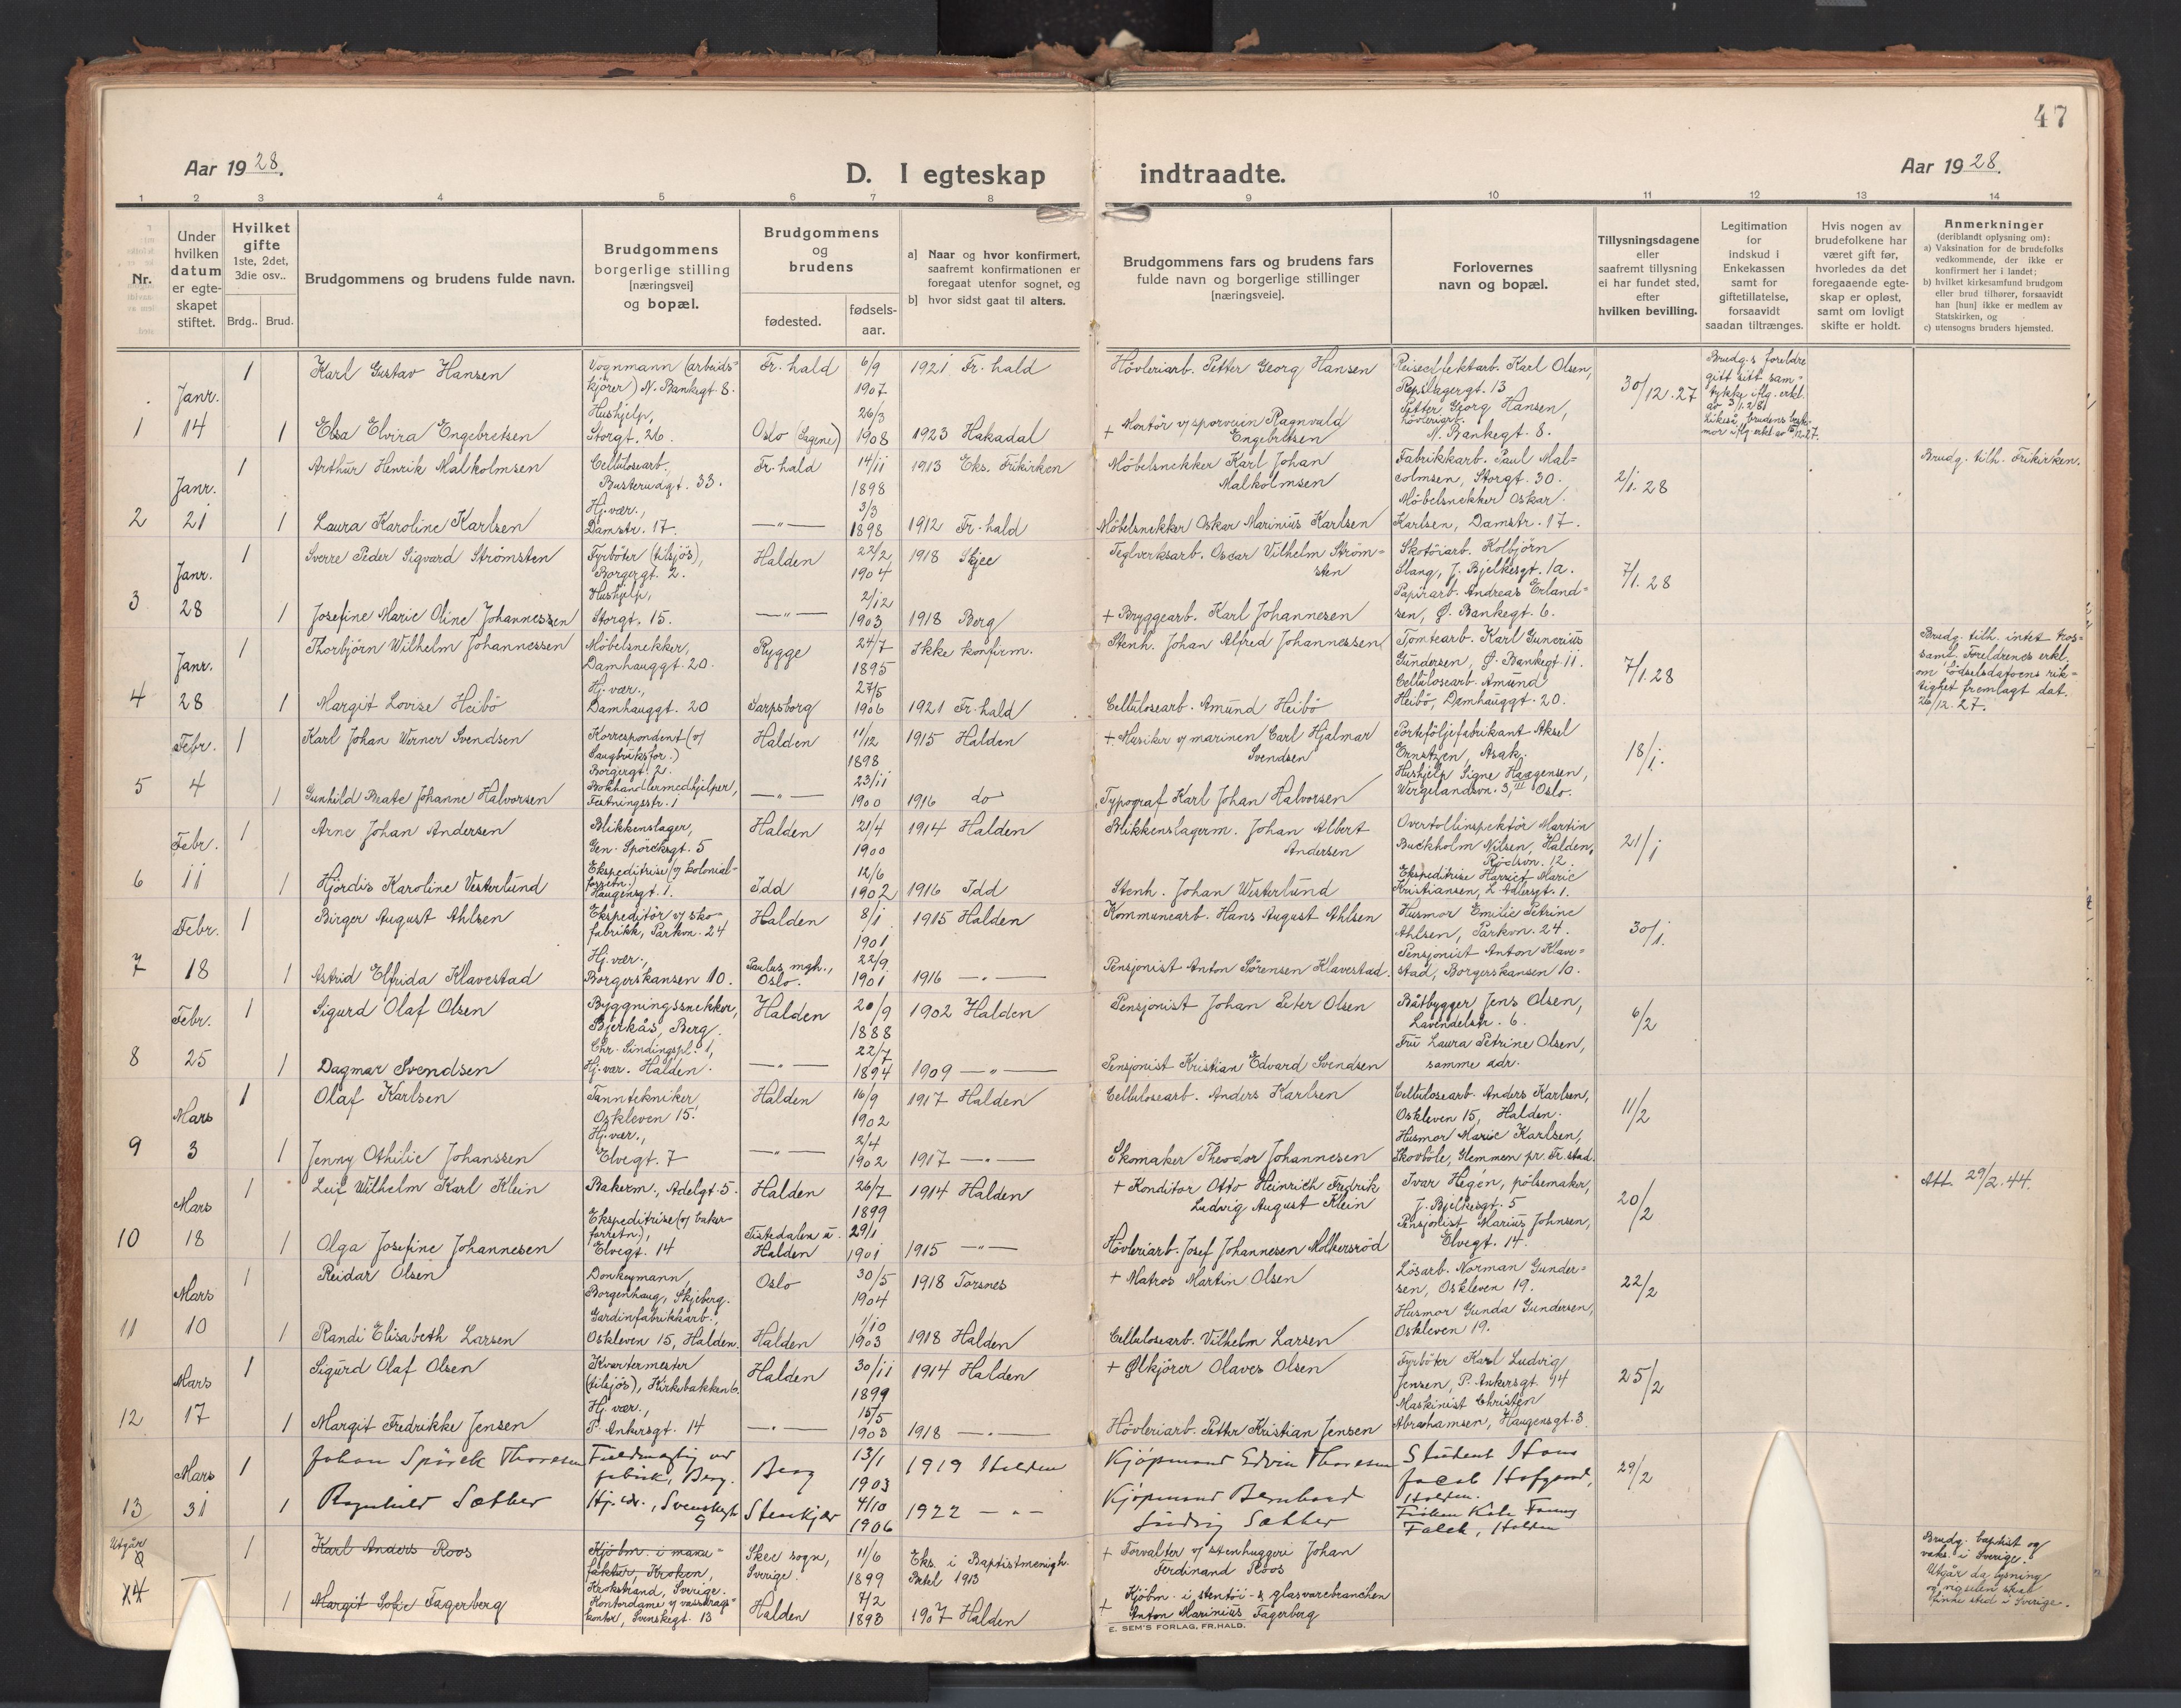 47
Aar 1928.
D. I egteskap indtraadte.
Aar 1928.
1 2 3 4 5 6 7 8 9 10 11 12 13 14
Nr.
Under hvilken datum er egteskapet stiftet.
Hvilket gifte 1ste, 2det, 3die osv..
Brdg.. Brud.
Brudgommens og brudens fulde navn.
Brudgommens borgerlige stilling [næringsvei] og bopæl.
Brudgommens og brudens
fødested.
fødsels-aar.
a] Naar og hvor konfirmert, saafremt konfirmationen er foregaat utenfor sognet, og
b] hvor sidst gaat til alters.
Brudgommens fars og brudens fars fulde navn og borgerlige stillinger [næringsveie].
Forlovernes navn og bopæl.
Tillysningsdagene eller saafremt tillysning ei har fundet sted, efter hvilken bevilling.
Legitimation for indskud i Enkekassen samt for giftetillatelse, forsaavidt saadan tiltrænges.
Hvis nogen av brudefolkene har været gift før, hvorledes da det foregaaende egteskap er opløst, samt om lovligt skifte er holdt.
Anmerkninger (deriblandt oplysning om):
a) Vaksination for de brudefolks vedkommende, der ikke er konfirmert her i landet;
b) hvilket kirkesamfund brudgom eller brud tilhører, forsaavidt han [hun] ikke er medlem av Statskirken, og
c) utensogns bruders hjemsted.
1 Janr. 14
1 Karl Gustav Hansen Vognmann (arbeidskjører) N. Bankegt 8. Fr. hald 6/9 1907 1921 Fr. hald Høvleriarb. Petter Georg Hansen
Karl Olsen, Repslagergt. 13
Petter Georg Hansen, høvleriarb. N. Bankegt. 8.
30/12.27
Brudg.s foreldre gitt sitt samtykke iflg. erkl. av 3/1.28
1 Elsa Elvira Engebretsen Hushjelp, Storgt. 26. Oslo (Sagene) 26/3 1908 1923 Hakadal + Kontör v/ sporveien Ragnvald Engebretsen
2 Janr. 21
1 Arthur Henrik Malkolmsen Cellulosearb., Busterudgt. 33. Fr. hald 14/11 1898 1913 Eks. Frikirken Møbelsnekker Karl Johan Malkolmsen
Fabrikkarb. Paul Malcolmsen, Storgt. 30.
Møbelsnekker Oskar Karlsen, Damstr. 17.
2/1. 28
Brudg. tilh. Frikirken.
1 Laura Karoline Karlsen Hj. vær., Damstr. 17. —"— 3/3 1898 1912 Fr. hald Møbelsnekker Oskar Marinius Karlsen
3 Janr. 28
1 Sverre Peder Sigvard Strømsten Fyrbøter (tilsjøs), Borgergt. 2. Halden 22/2 1904 1918 Skjee Teglverksarb. Oscar Vilhelm Strømsten
Skotøiarb. Kolbjørn Slang, J. Bjelkesgt. 1a.
Papirarb. Andreas Erlandsen, Ø. Bankegt. 6.
7/1. 28
1 Josefine Marie Oline Johannessen Hushjelp, Storgt. 15. —"— 2/12 1903 1918 Berg + Bryggearb. Karl Johannesen
4 Janr. 28
1 Thorbjørn Wilhelm Johannessen Møbelsnekker, Damhauggt. 20. Rygge 24/7 1895 Ikke konfirm. Stenh. Johan Alfred Johannessen
Tomtearb. Karl Gunerius Gundersen, Ø. Bankegt. 11.
Cellulosearb. Amund Heibö, Damhauggt. 20.
7/1. 28
Brudg. tilh. intet kossamf. Foreldrenes erkl. om fødselsdatoens riktighet fremlagt dat. 26/12. 27.
1 Margit Lovise Heibö Hj. vær., Damhauggt. 20 Sarpsborg 27/5 1906 1921 Fr. hald Cellulosearb. Amund Heibö
5 Febr. 4
1 Karl Johan Werner Svendsen Korrespondent (v/ Saugbruksfor.) Borgergt. 2. Halden 11/12 1898 1915 Halden + Musiker v/ marinen Carl Hjalmar Svendsen
Porteføljefabrikant Aksel Ernstzen, Asak.
Hushjelp Signe Haagensen, Wergelandsvn. 3, III Oslo.
18/1.
1 Gunhild Beate Johanne Halvorsen Bokhandlermedhjelper, Festningsstr. 1 —"— 23/11 1900 1916 do Typograf Karl Johan Halvorsen
6 Febr. 11
1 Arne Johan Andersen Blikkenslager, Gen. Spørcksgt. 5 Halden 21/4 1900 1914 Halden Blikkenslagerm. Johan Albert Andersen
Overtollinspektör Martin Buckholm Nilsen, Halden, Rødsvn. 12.
Ekspeditrise Harriet Marie Kristiansen, L. Adlersgt. 1.
21/1
1 Hjördis Karoline Vesterlund Ekspeditrise (v/ kolonialforretn.) Haugensgt. 1. Idd 12/6 1902 1916 Idd Stenh. Johan Westerlund
7 Febr. 18
1 Birger August Ahlsen Ekspeditör v/ skofabrikk, Parkvn. 24 Halden 8/1 1901 1915 Halden Kommunearb. Hans August Ahlsen
Husmor Emilie Petrine Ahlsen, Parkvn. 24.
Pensjonist Anton Klavestad, Borgerskansen 10.
30/1.
1 Astrid Elfrida Klavestad Hj. vær., Borgerskansen 10. Paulus mgh., Oslo. 22/9. 1901 1916 —"— Pensjonist Anton Sørensen Klavestad.
8 Febr. 25
1 Sigurd Olaf Olsen Bygningssnekker, Bjerkås, Berg. Halden 20/9 1888 1902 Halden Pensjonist Johan Peter Olsen
Båtbygger Jens Olsen, Lavendelstr. 6.
Fru Laura Petrine Olsen, samme adr.
6/2
1 Dagmar Svendsen Chr. Sindingspl. 1, Hj. vær. Halden. —"— 22/7 1894 1909 —"— Pensjonist Kristian Edvard Svendsen
9 Mars 3
1 Olaf Karlsen Tanntekniker, Oskleven 15. Halden 16/9 1902 1917 Halden Cellulosearb. Anders Karlsen
Cellulosearb. Anders Karlsen, Oskleven 15, Halden.
Husmor Marie Karlsen, Skovböle, Glemmen pr. Fr. stad.
11/2
1 Jenny Othilie Johanssen Hj. vær., Elvegt. 7 —"— 2/4 1902 1917 —"— Skomaker Theodor Johannesen
10 Mars 18
1 Leif Wilhelm Karl Klein Bakerm., Adelgt. 5. Halden 26/7 1899 1914 Halden + Konditor Otto Heinrich Fredrik Ludvig August Klein
Ivar Hegén, pølsemaker, J. Bjelkesgt. 5
Pensjonist Marius Johnsen, Elvegt. 14.
20/2
Att. 29/2. 44.
1 Olga Josefine Johannesen Ekspeditrise (v/ bakerforretn), Elvegt. 14 Tistedalen u. Halden 29/1 1901 1915 —"— Høvleriarb. Josef Johannesen Molkersröd
11 Mars 10
1 Reidar Olsen Donkeymann, Borgenhaug, Skjeberg. Oslo 30/5 1904 1918 Torsnes + Matros Martin Olsen
Løsarb. Norman Gundersen, Oskleven 19.
Husmor Gunda Gundersen, Oskleven 19.
22/2
1 Randi Elisabeth Larsen Gardinfabrikkarb., Oskleven 15, Halden. Halden 1/10 1903 1918 Halden Cellulosearb. Vilhelm Larsen
12 Mars 17
1 Sigurd Olaf Olsen Kvartermester (tilsjøs), Kirkebakken 6. Halden 30/11 1899 1914 Halden + Ølkjører Olaves Olsen
Fyrbøter Karl Ludvig Jensen, P. Ankersgt. 14
Maskinist Christen Abrahamsen, Haugensgt. 3
25/2
1 Margit Fredrikke Jensen Hj. vær., P. Ankersgt. 14 —"— 15/5 1903 1918 —"— Høvleriarb. Petter Kristian Jensen
13 Mars 31
1 Johan Spörck Thoresen Fuldmegtig ved fabrik, Berg. Berg 13/1 1903 1919 Halden Kjøpmand Edvin Thoresen
Student Hans Jacob Hofgaard, Halden.
Frøken Falck, Halden
29/2
1 Ragnhild Sæther Hj. vær., Svenskegt. 9 Stenkjær 4/10 1906 1922 —"— Kjøpmand Bernhard Ludvig Sæther
Utgår
14
1 Karl Anders Roos Kjöbm. i manufaktur, Kroken, Krokstrand, Sverige. Skee sogn, Sverige. 11/6 1899 Eks. i Baptistmenigh. Betel 1913 + Forvalter v/ stenhuggeri Johan Ferdinand Roos
Brudg. baptist og vaks. i Sverige. Utgår da lysning og vigselen skal finne sted i Sverige.
1 Margit Sofie Fagerberg Kontordame v/ vassdragskontor, Svenskegt. 13 Halden 7/2 1893 1907 Halden + Kjöbm. i stentöi- & glasvarebranchen Anton Marinius Fagerberg
E. SEM'S FORLAG, FR.HALD.